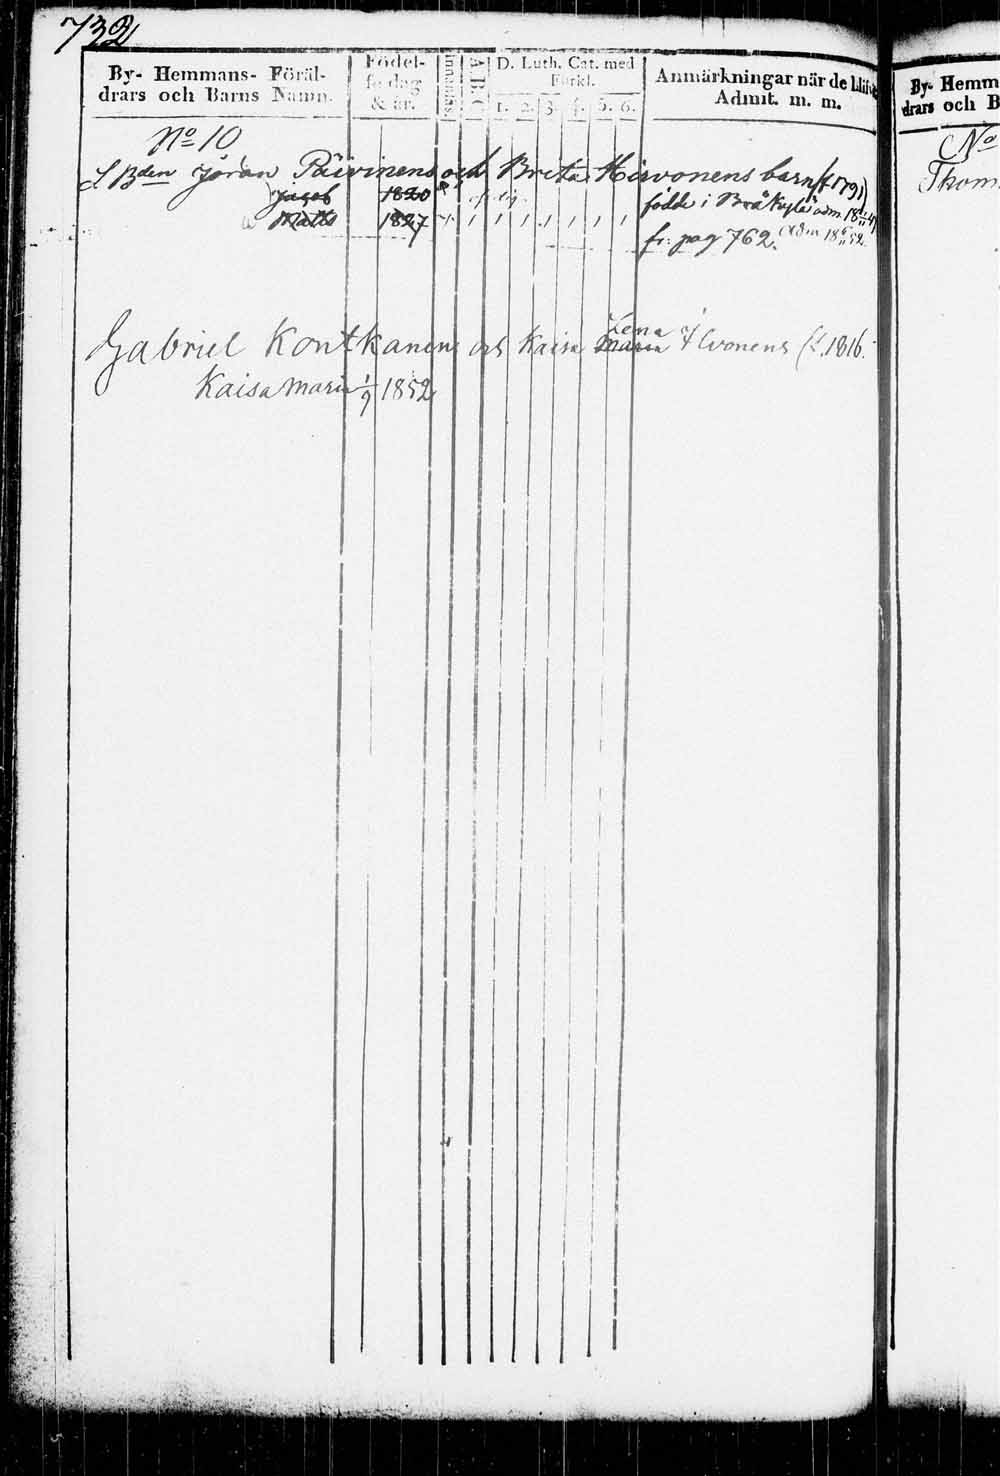 732
By- Hemmans- Föräl-
drars och Barns Namn.
Födel-
sedag
& år.
A.B.C.
D. Luth. Cat. med
Förkl.
1. 2. 3. 4. 5. 6.
Anmärkningar när de blifvit
Admit. m. m.
No 10
S. Bden Jöran Päivinens och Brita Hirvonens barn (f. 1791)
Jacob 1820
Matts 1827
födde i Bräkylä adm. 18
fr: pag 762. Adm. 18 52.
Gabriel Kontkanens och Kaisa Maria Lena Ilvonens (f. 1816.
Kaisa Maria 1/9 1852
By- Hemm
drars och B
No
Thom